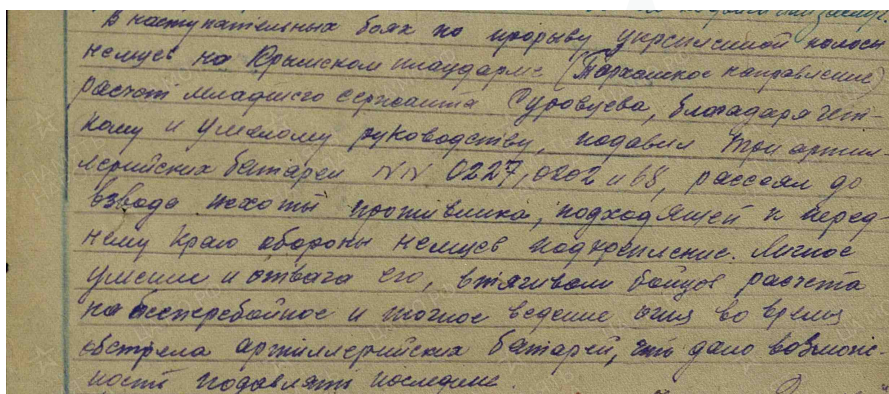 В наступательных боях по прорыву укрепленной полосы
немцев на Крымском плацдарме (Тарханское направление)
расчет младшего сержанта Суровцева, благодаря чет-
кому и умелому руководству, подавил три артил-
лерийских батареи NN 0227, 0202 и 68, рассеял до
взвода пехоты противника, подходящей к перед-
нему краю обороны немцев подкрепление. Личное
умение и отвага его, втягивали бойцов расчета
на бесперебойное и точное ведение огня во время
обстрела артиллерийских батарей, что дало возмож-
ность подавлять последние.